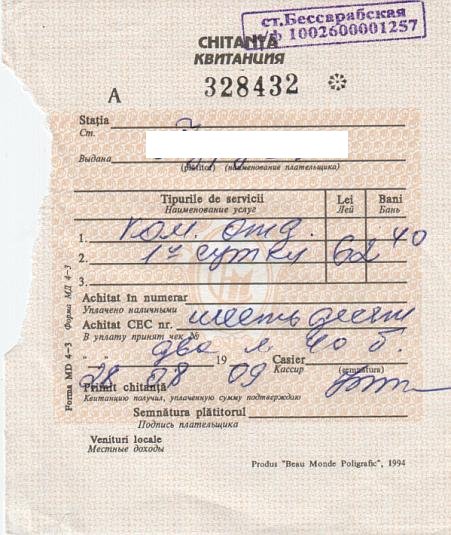 ст.Бессарабская
ф 1002600001257
CHITANŢA
КВИТАНЦИЯ
A 328432
Staţia
Ст.
Выдана
(plătitor) (наименование плательщика)
Tipurile de servicii Lei Bani
Наименование услуг Лей Бань
1. ком. отд. 62 40
2. 1е сутки
3.
Achitat în numerar
Уплачено наличными
шесть десят
Achitat CEC nr.
В уплату принят чек №
два л. 40 б.
28 08 19 09 Casier
Кассир (semnătura)
Primit chitanţa
Квитанцию получил, уплаченную сумму подтверждаю
Semnătura plătitorul
Подпись плательщика
Venituri locale
Местные доходы
Forma MD 4–3 Форма МД 4–3
Produs "Beau Monde Poligrafic", 1994